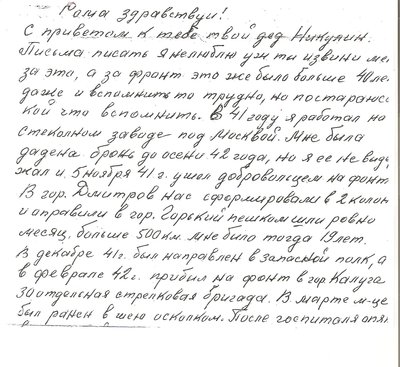 Рома здравствуй!
С приветом к тебе твой дед Никулин.
Письма писать я нелюблю уж ты извини ме
за это, а за фронт это же было больше 40 ле
даже и вспомнить то трудно, но постараюс
кой что вспомнить. В 41 году я работал на
стеколном заводе под Москвой. Мне была
дадена бронь до осени 42 года, но я ее не выде
жал и 5 ноября 41 г. ушол добровольцем на фонт
В гор. Дмитров нас сформировали в 2 колон
и оправили в гор. Горький пешком шли ровно
месяц, больше 500 км. мне было тогда 19 лет.
В декабре 41г. был направлен в запасной полк, а
в феврале 42г. прибыл на фонт в гор Калуга
30 отдельная стрелковая бригада. В марте м-це
был ранен в шею осколком. После госпиталя опя